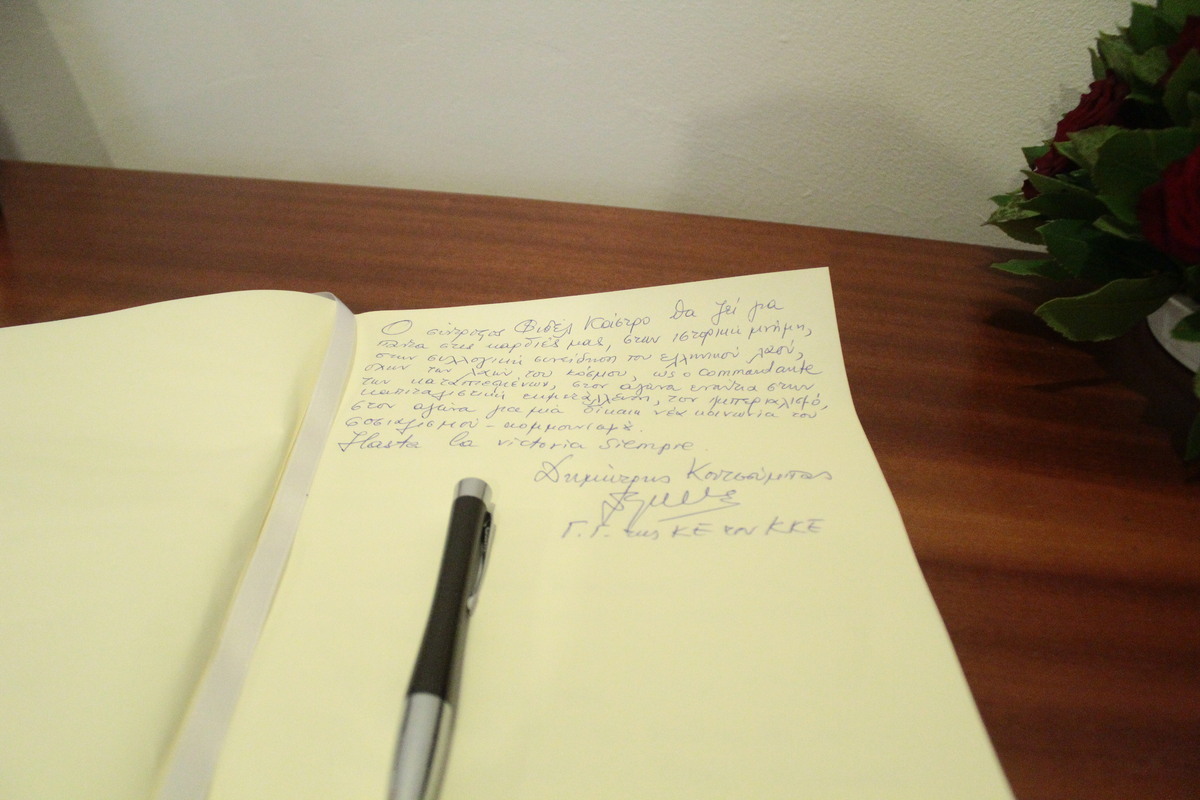 Ο σύντροφος Φιδέλ Κάστρο θα ζεί για
πάντα στις καρδιές μας, στην ιστορική μνήμη,
στην συλλογική συνείδηση του ελληνικού λαού,
όλων των λαών του κόσμου, ως ο Commandante
των καταπιεσμένων, στον αγώνα ενάντια στην
καπιταλιστική εκμετάλλευση, τον ιμπεριαλισμό,
στον αγώνα για μια δίκαιη νέα κοινωνία του
σοσιαλισμού - κομμουνισμού.
Hasta la victoria siempre.
Δημήτρης Κουτσούμπας
Γ.Γ. της ΚΕ του ΚΚΕ